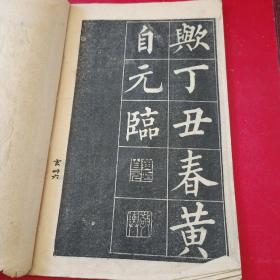 歟丁丑春黄
自元臨